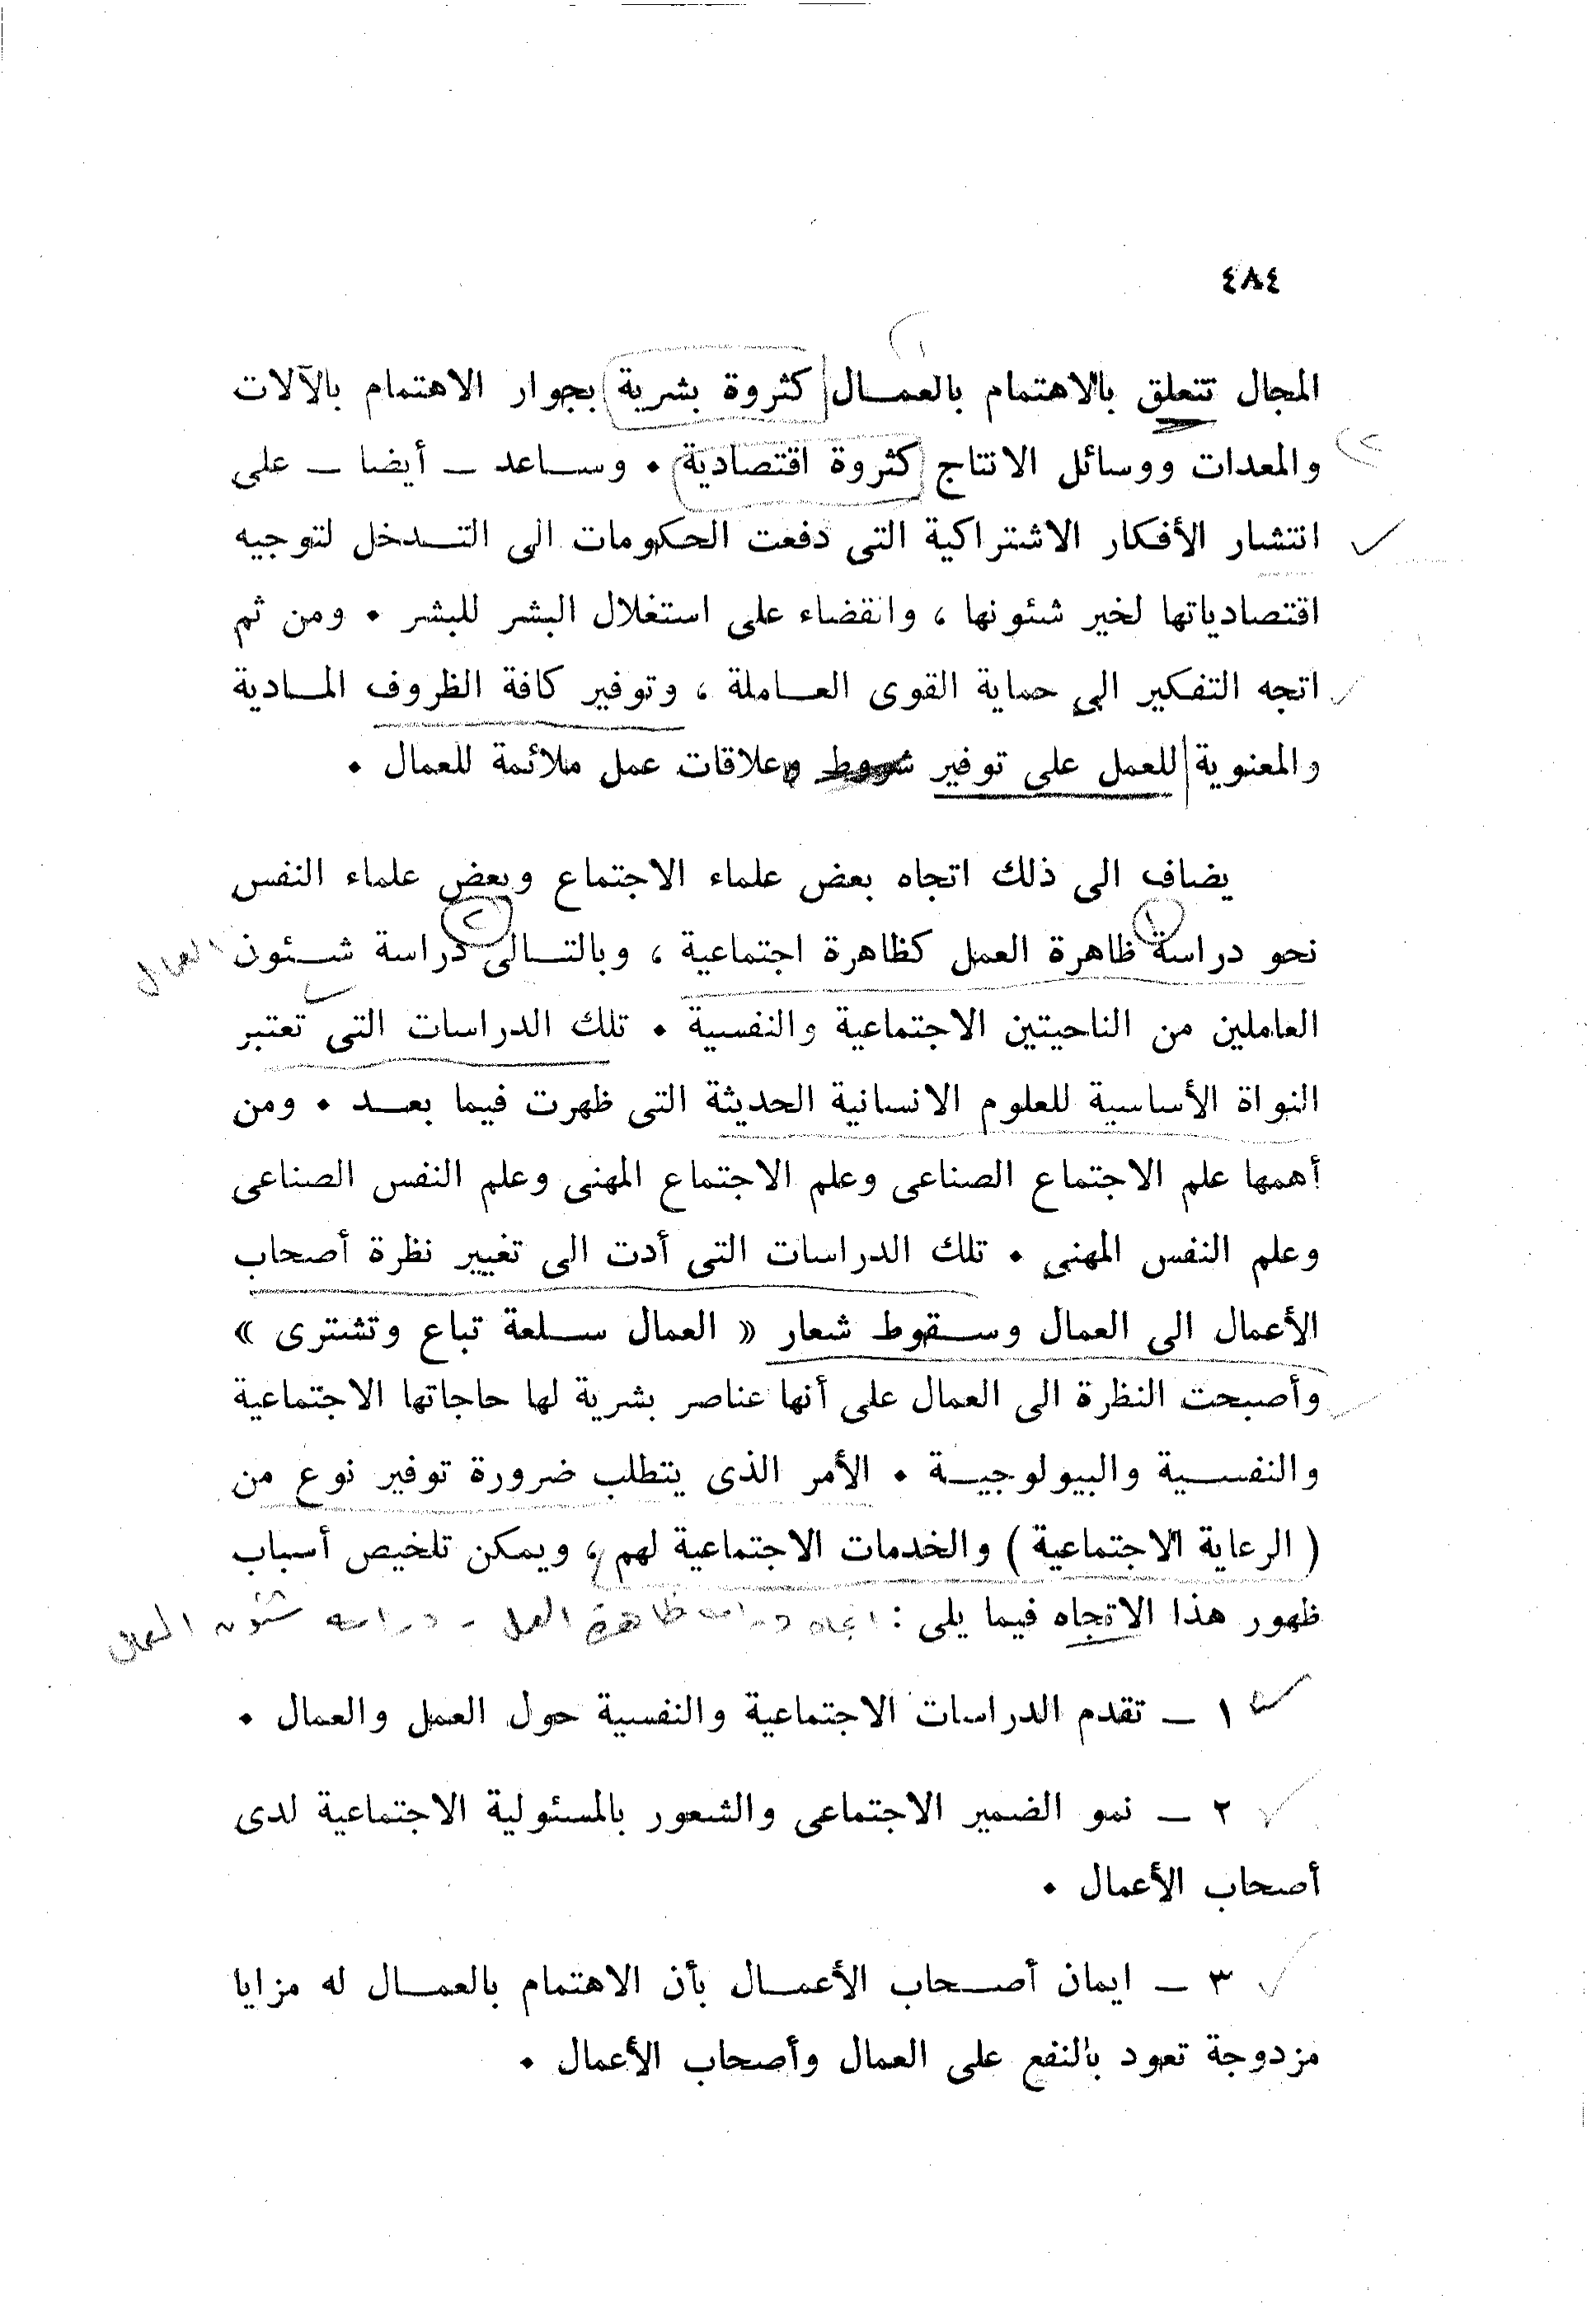 ٤٨٤
المجال تتعلق بالاهتمام بالعمال كثروة بشرية بجوار الاهتمام بالآلات
والمعدات ووسائل الانتاج كثروة اقتصادية • وساعد — أيضا — على
انتشار الأفكار الاشتراكية التى دفعت الحكومات الى التدخل لتوجيه
اقتصادياتها لخير شئونها ، وانقضاء على استغلال البشر للبشر • ومن ثم
اتجه التفكير الى حماية القوى العاملة ، وتوفير كافة الظروف المادية
والمعنوية للعمل على توفير شروط وعلاقات عمل ملائمة للعمال •
يضاف الى ذلك اتجاه بعض علماء الاجتماع وبعض علماء النفس
نحو دراسة ظاهرة العمل كظاهرة اجتماعية ، وبالتالى دراسة شئون العمال
العاملين من الناحيتين الاجتماعية والنفسية • تلك الدراسات التى تعتبر
النواة الأساسية للعلوم الانسانية الحديثة التى ظهرت فيما بعد • ومن
أهمها علم الاجتماع الصناعى وعلم الاجتماع المهنى وعلم النفس الصناعى
وعلم النفس المهنى • تلك الدراسات التى أدت الى تغيير نظرة أصحاب
الأعمال الى العمال وسقوط شعار « العمال سلعة تباع وتشترى »
وأصبحت النظرة الى العمال على أنها عناصر بشرية لها حاجاتها الاجتماعية
والنفسية والبيولوجية • الأمر الذى يتطلب ضرورة توفير نوع من
( الرعاية الاجتماعية ) والخدمات الاجتماعية لهم ، ويمكن تلخيص أسباب
ظهور هذا الاتجاه فيما يلى : اتجاه دراسة ظاهرة العمل - دراسة شئون العمال
١ — تقدم الدراسات الاجتماعية والنفسية حول العمل والعمال •
٢ — نمو الضمير الاجتماعى والشعور بالمسئولية الاجتماعية لدى
أصحاب الأعمال •
٣ — ايمان أصحاب الأعمال بأن الاهتمام بالعمال له مزايا
مزدوجة تعود بالنفع على العمال وأصحاب الأعمال •